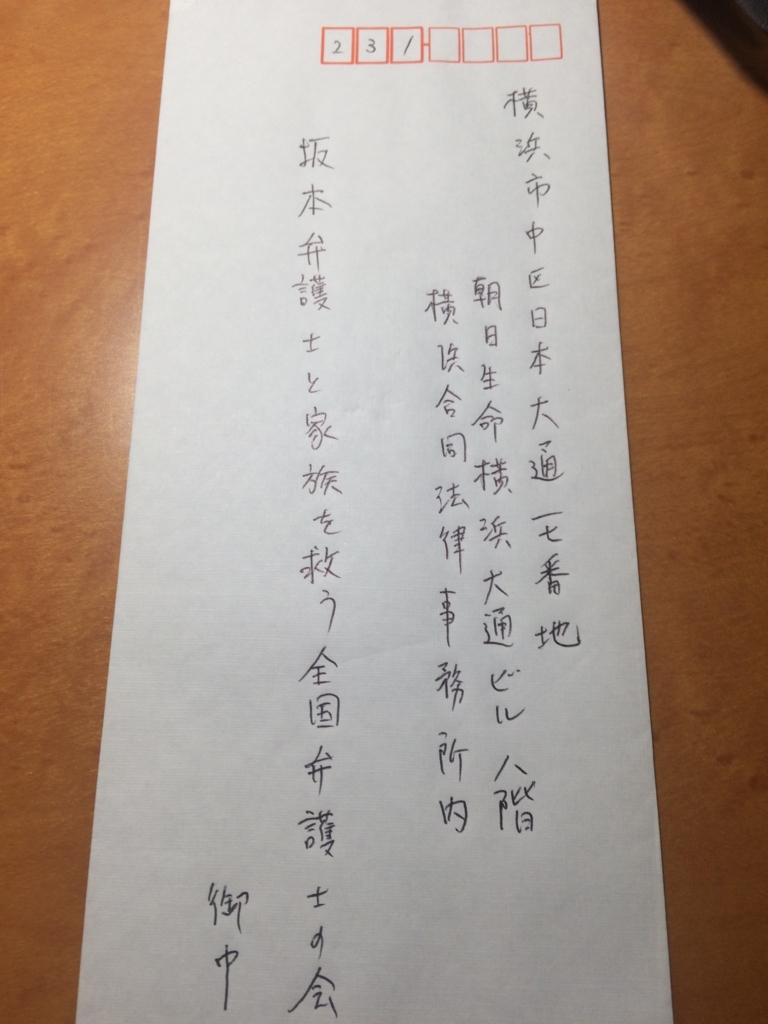 231-
横浜市中区日本大通一七番地
朝日生命横浜大通ビル八階
横浜合同法律事務所内
坂本弁護士と家族を救う全国弁護士の会
御中